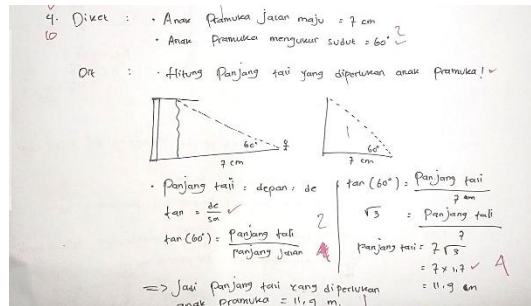 4. Diket : · Anak Pramuka jalan maju = 7 cm
10
· Anak Pramuka mengukur sudut = 60° 2
Dit : · Hitung Panjang tali yang diperlukan anak Pramuka!
60°
7 cm
60°
7 cm
· Panjang tali = depan = de
tan = de/sa
tan (60°) = Panjang tali / Panjang jalan
2
4
tan (60°) = Panjang tali / 7 cm
√3 = Panjang tali / 7
Panjang tali = 7√3
= 7 x 1,7
4
= 11,9 cm
=> Jadi Panjang tali yang diperlukan
anak pramuka = 11,9 m.